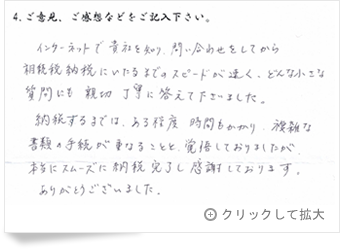 4.ご意見、ご感想などをご記入下さい。
インターネットで貴社を知り、問い合わせをしてから
相続税納税にいたるまでのスピードが速く、どんな小さな
質問にも親切丁寧に答えて下さいました。
納税するまでは、ある程度時間もかかり、複雑な
書類の手続が重なることと、覚悟しておりましたが、
本当にスムーズに納税完了し感謝しております。
ありがとうございました。
クリックして拡大